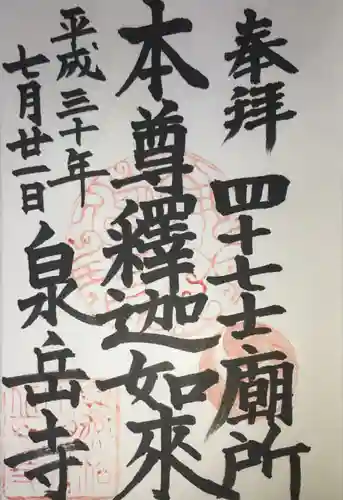 奉拝
四十七士廟所
本尊釋迦如來
平成三十年
七月廿一日
泉岳寺